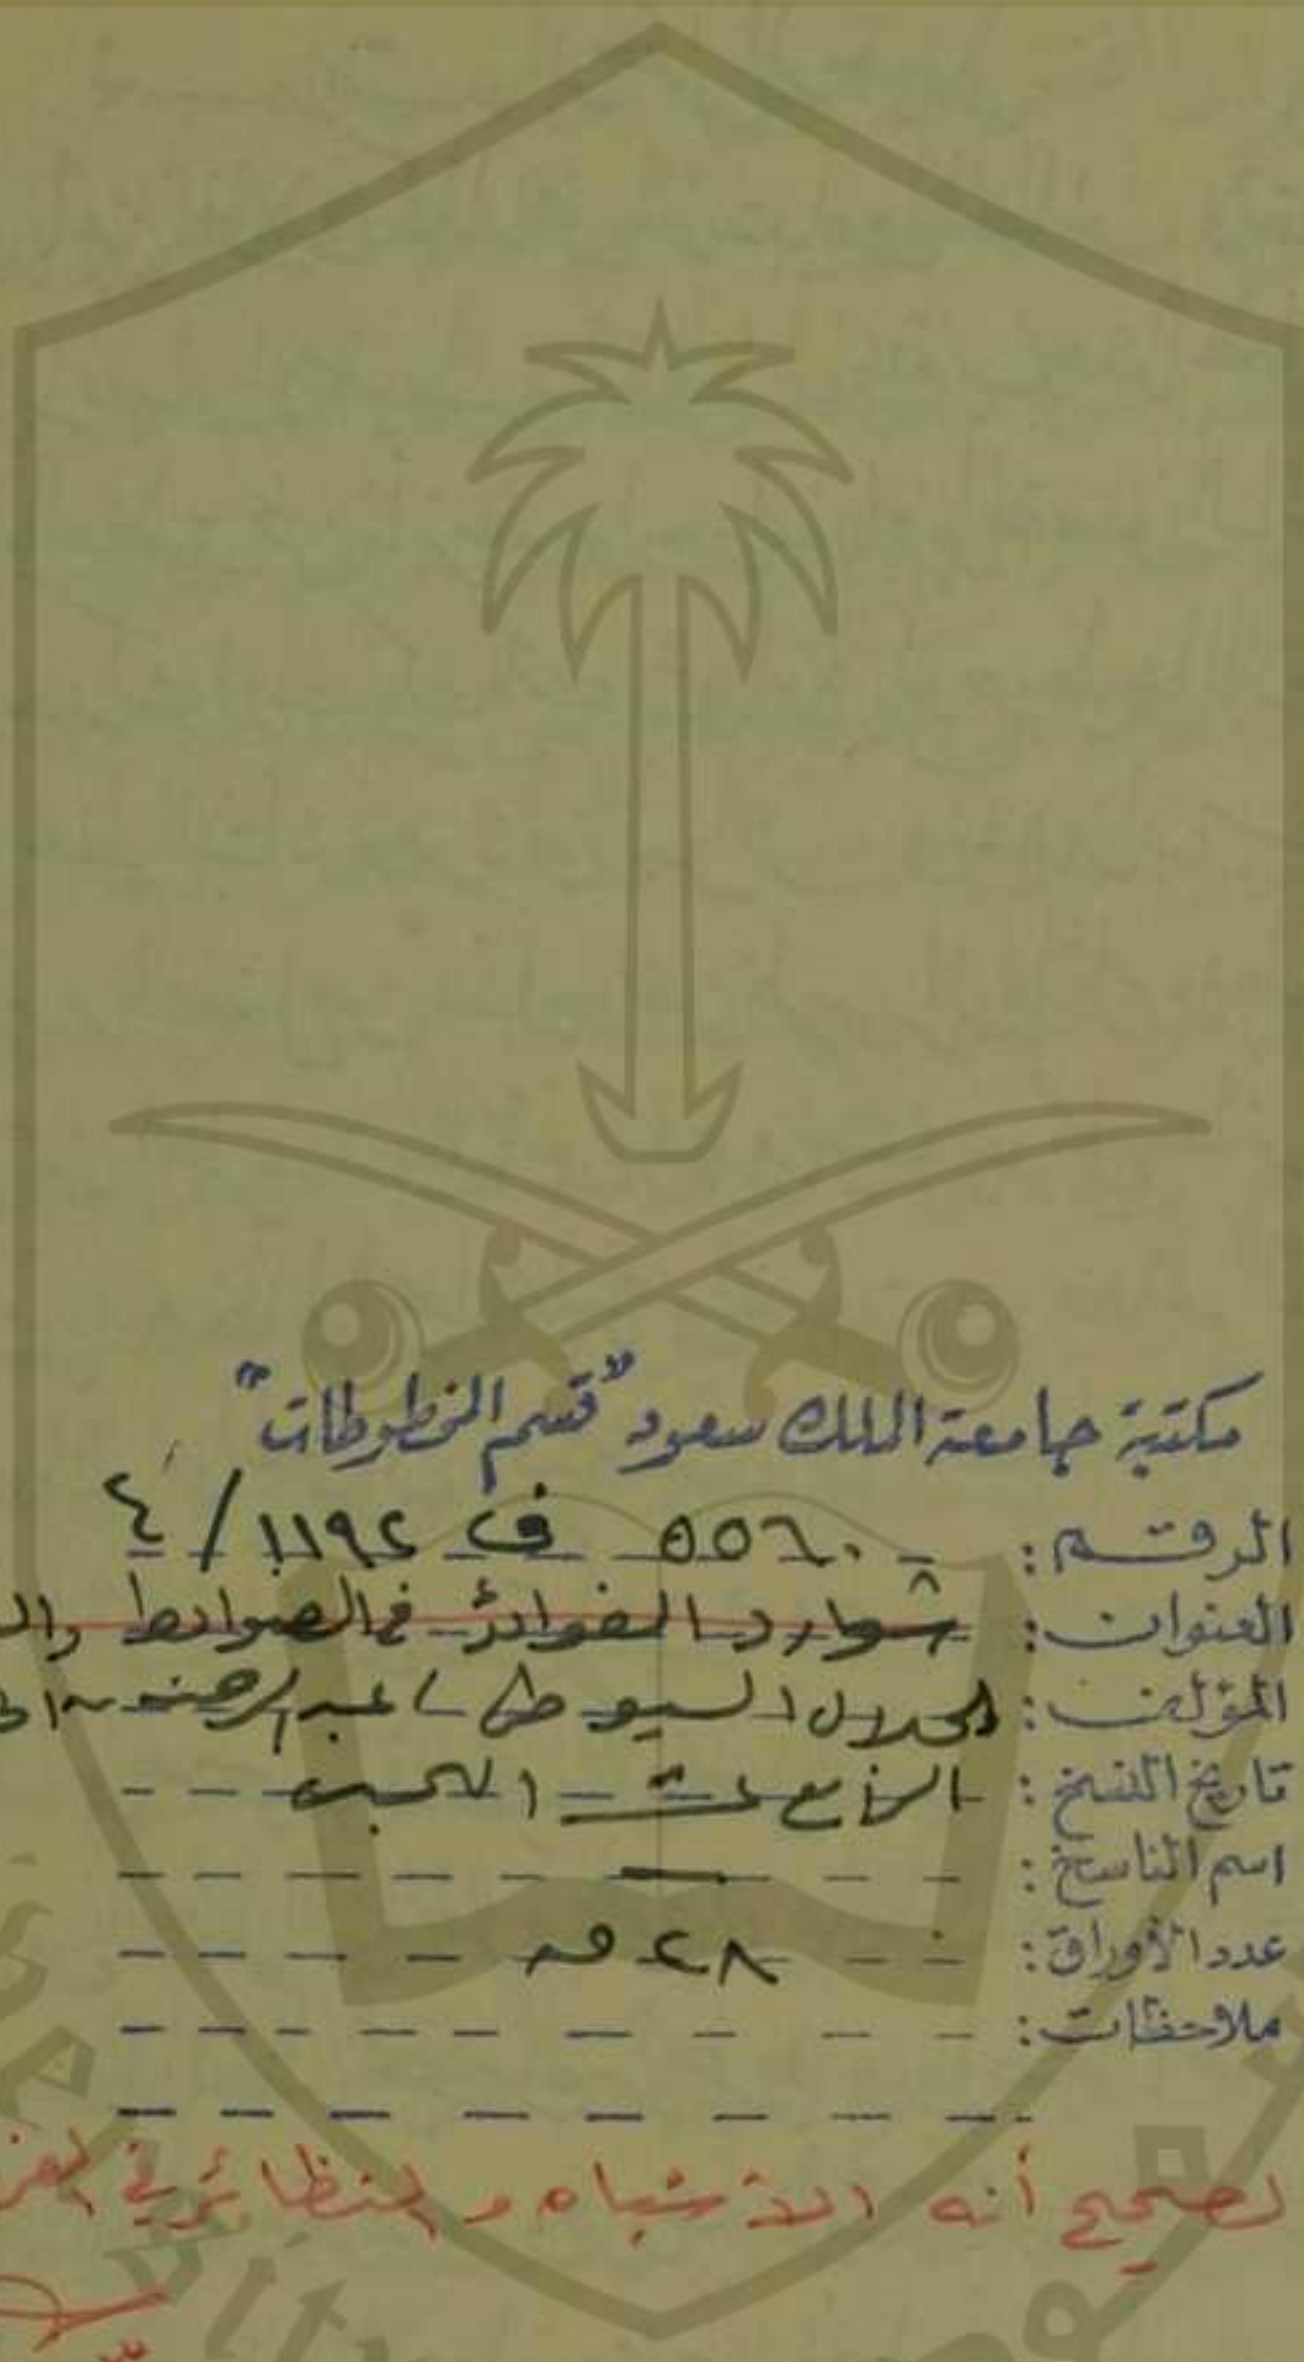 مكتبة جامعة الملك سعود "قسم المخطوطات"
الرقم: ٥٥٦٠ ف ١١٩٢/٤
العنوان: شوارد الفوائد في الضوابط
المؤلف: الجلال السيوطي، عبدالرحمن
تاريخ النسخ: الرابع عشر الهجري
اسم الناسخ: —
عدد الأوراق: ٢٨ ق
ملاحظات:
لصحيح أنه الأشباه والنظائر في